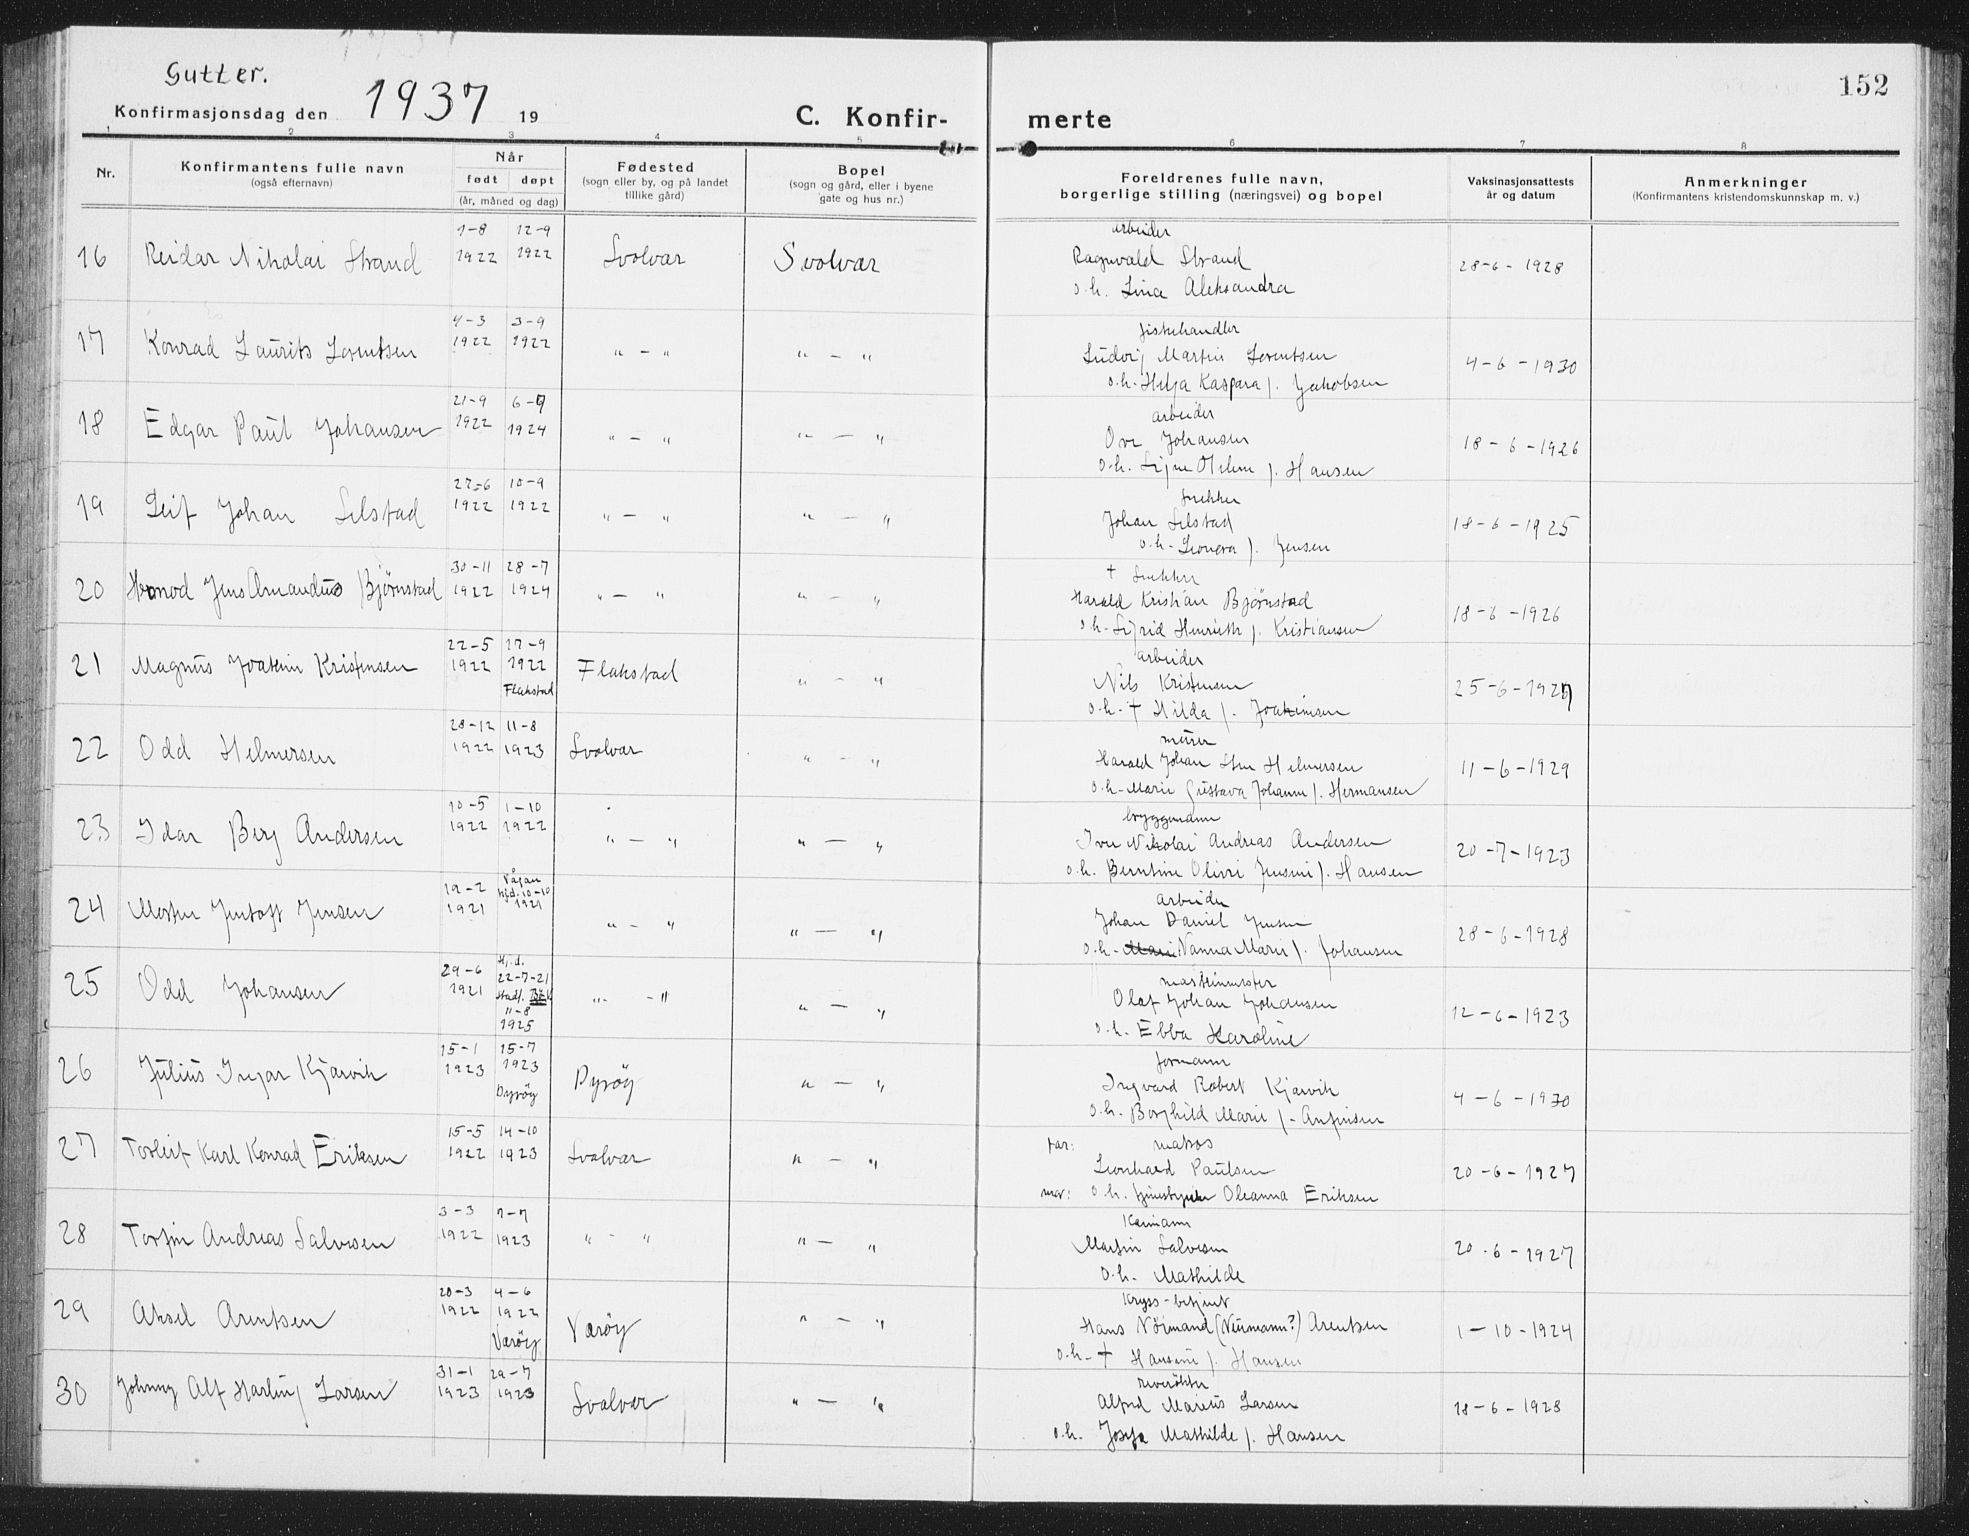 Gutter.
152
Konfirmasjonsdag den 1937 19
C. Konfir-
merte
1 2 3 4 5 6 7 8
Nr.
Konfirmantens fulle navn
(også efternavn)
Når
født døpt
(år, måned og dag)
Fødested
(sogn eller by, og på landet
tillike gård)
Bopel
(sogn og gård, eller i byene
gate og hus nr.)
Foreldrenes fulle navn,
borgerlige stilling (næringsvei) og bopel
Vaksinasjonsattests
år og datum
Anmerkninger
(Konfirmantens kristendomskunnskap m. v.)
1-8 12-9 arbeider
16 Reidar Nikolai Strand 1922 1922 Svolvær Svolvær Ragnvald Strand 28-6-1928
o.h. Lina Aleksandra
4-3 3-9 fiskehandler
17 Konrad Laurits Lorentsen 1922 1922 " - " " - " Ludvig Martin Lorentsen 4-6-1930
o.h. Helga Kaspara f. Jakobsen
21-9 6-9 arbeider
18 Edgar Paul Johansen 1922 1924 " - " " - " Ove Johansen 18-6-1926
o.h. Signe f. Hansen
27-6 10-9 snekker
19 Leif Johan Selstad 1922 1922 " - " " - " Johan Selstad 18-6-1925
o.h. Leonora f. Jensen
30-11 28-7 † snekker
20 Jens Amandus Bjørnstad 1922 1924 " - " " - " Harald Kristian Bjørnstad 18-6-1926
o.h. Sigrid Henriette f. Kristiansen
22-5 17-9 arbeider
21 Magnus Joakim Kristensen 1922 1922 Flakstad " - " Nils Kristensen 25-6-1927
Flakstad o.h. † Hilda f. Joakimsen
28-12 11-8 murer
22 Odd Helmersen 1922 1923 Svolvær " - " Harald Johan Helmersen 11-6-1929
o.h. Marie Gustava Johanne f. Hermansen
10-5 1-10 bryggemann
23 Idar Berg Andersen 1922 1922 " - " " - " Iver Nikolai Andreas Andersen 20-7-1923
o.h. Berntine Olivri Jensine f. Hansen
19-2 Vågan hjd. 10-10 arbeider
24 Jentoft Jensen 1921 1921 " - " " - " Johan Daniel Jensen 28-6-1928
o.h. Nanna Marie f. Johansen
29-6 Hj.d. 22-7-21 maskinmester
25 Odd Johansen 1921 stadf. 11-8 1925 " - " " - " Olaf Johan Johansen 12-6-1923
o.h. Ebba Karoline
15-1 15-7 formann
26 Julius Ingar Kjærvik 1923 1923 Dyrøy " - " Ingvard Robert Kjærvik 4-6-1930
Dyrøy o.h. Borghild Marie f. Anfinsen
15-5 14-10 far: matros
27 Torleif Karl Konrad Eriksen 1922 1923 Svolvær " - " Leonhard Paulsen 20-6-1927
mor: o.h. Oleanna Eriksen
3-3 7-7 Kaimann
28 Torfin Andreas Salvesen 1922 1923 " - " " - " Martin Salvesen 20-6-1927
o.h. Mathilde
20-3 4-6 Kryss-betjent
29 Aksel Arentsen 1922 1922 Værøy " - " Hans Nörmand (Neumann?) Arentsen 1-10-1924
Værøy o.h. † Hansine f. Hansen
31-1 29-7
30 Johnny Alf Harling Larsen 1923 1923 Svolvær " - " Alfred Marius Larsen 18-6-1928
o.h. Josefa Mathilde f. Hansen